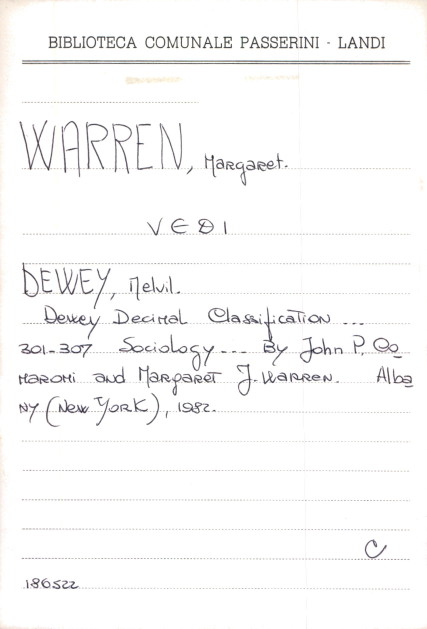 BIBLIOTECA COMUNALE PASSERINI - LANDI
WARREN, Margaret.
VEDI
DEWEY, Melvil.
Dewey Decimal Classification ...
301-307 Sociology ... By John P. Co
maromi and Margaret J. Warren. Alba
ny (New York), 1982.
C
186522